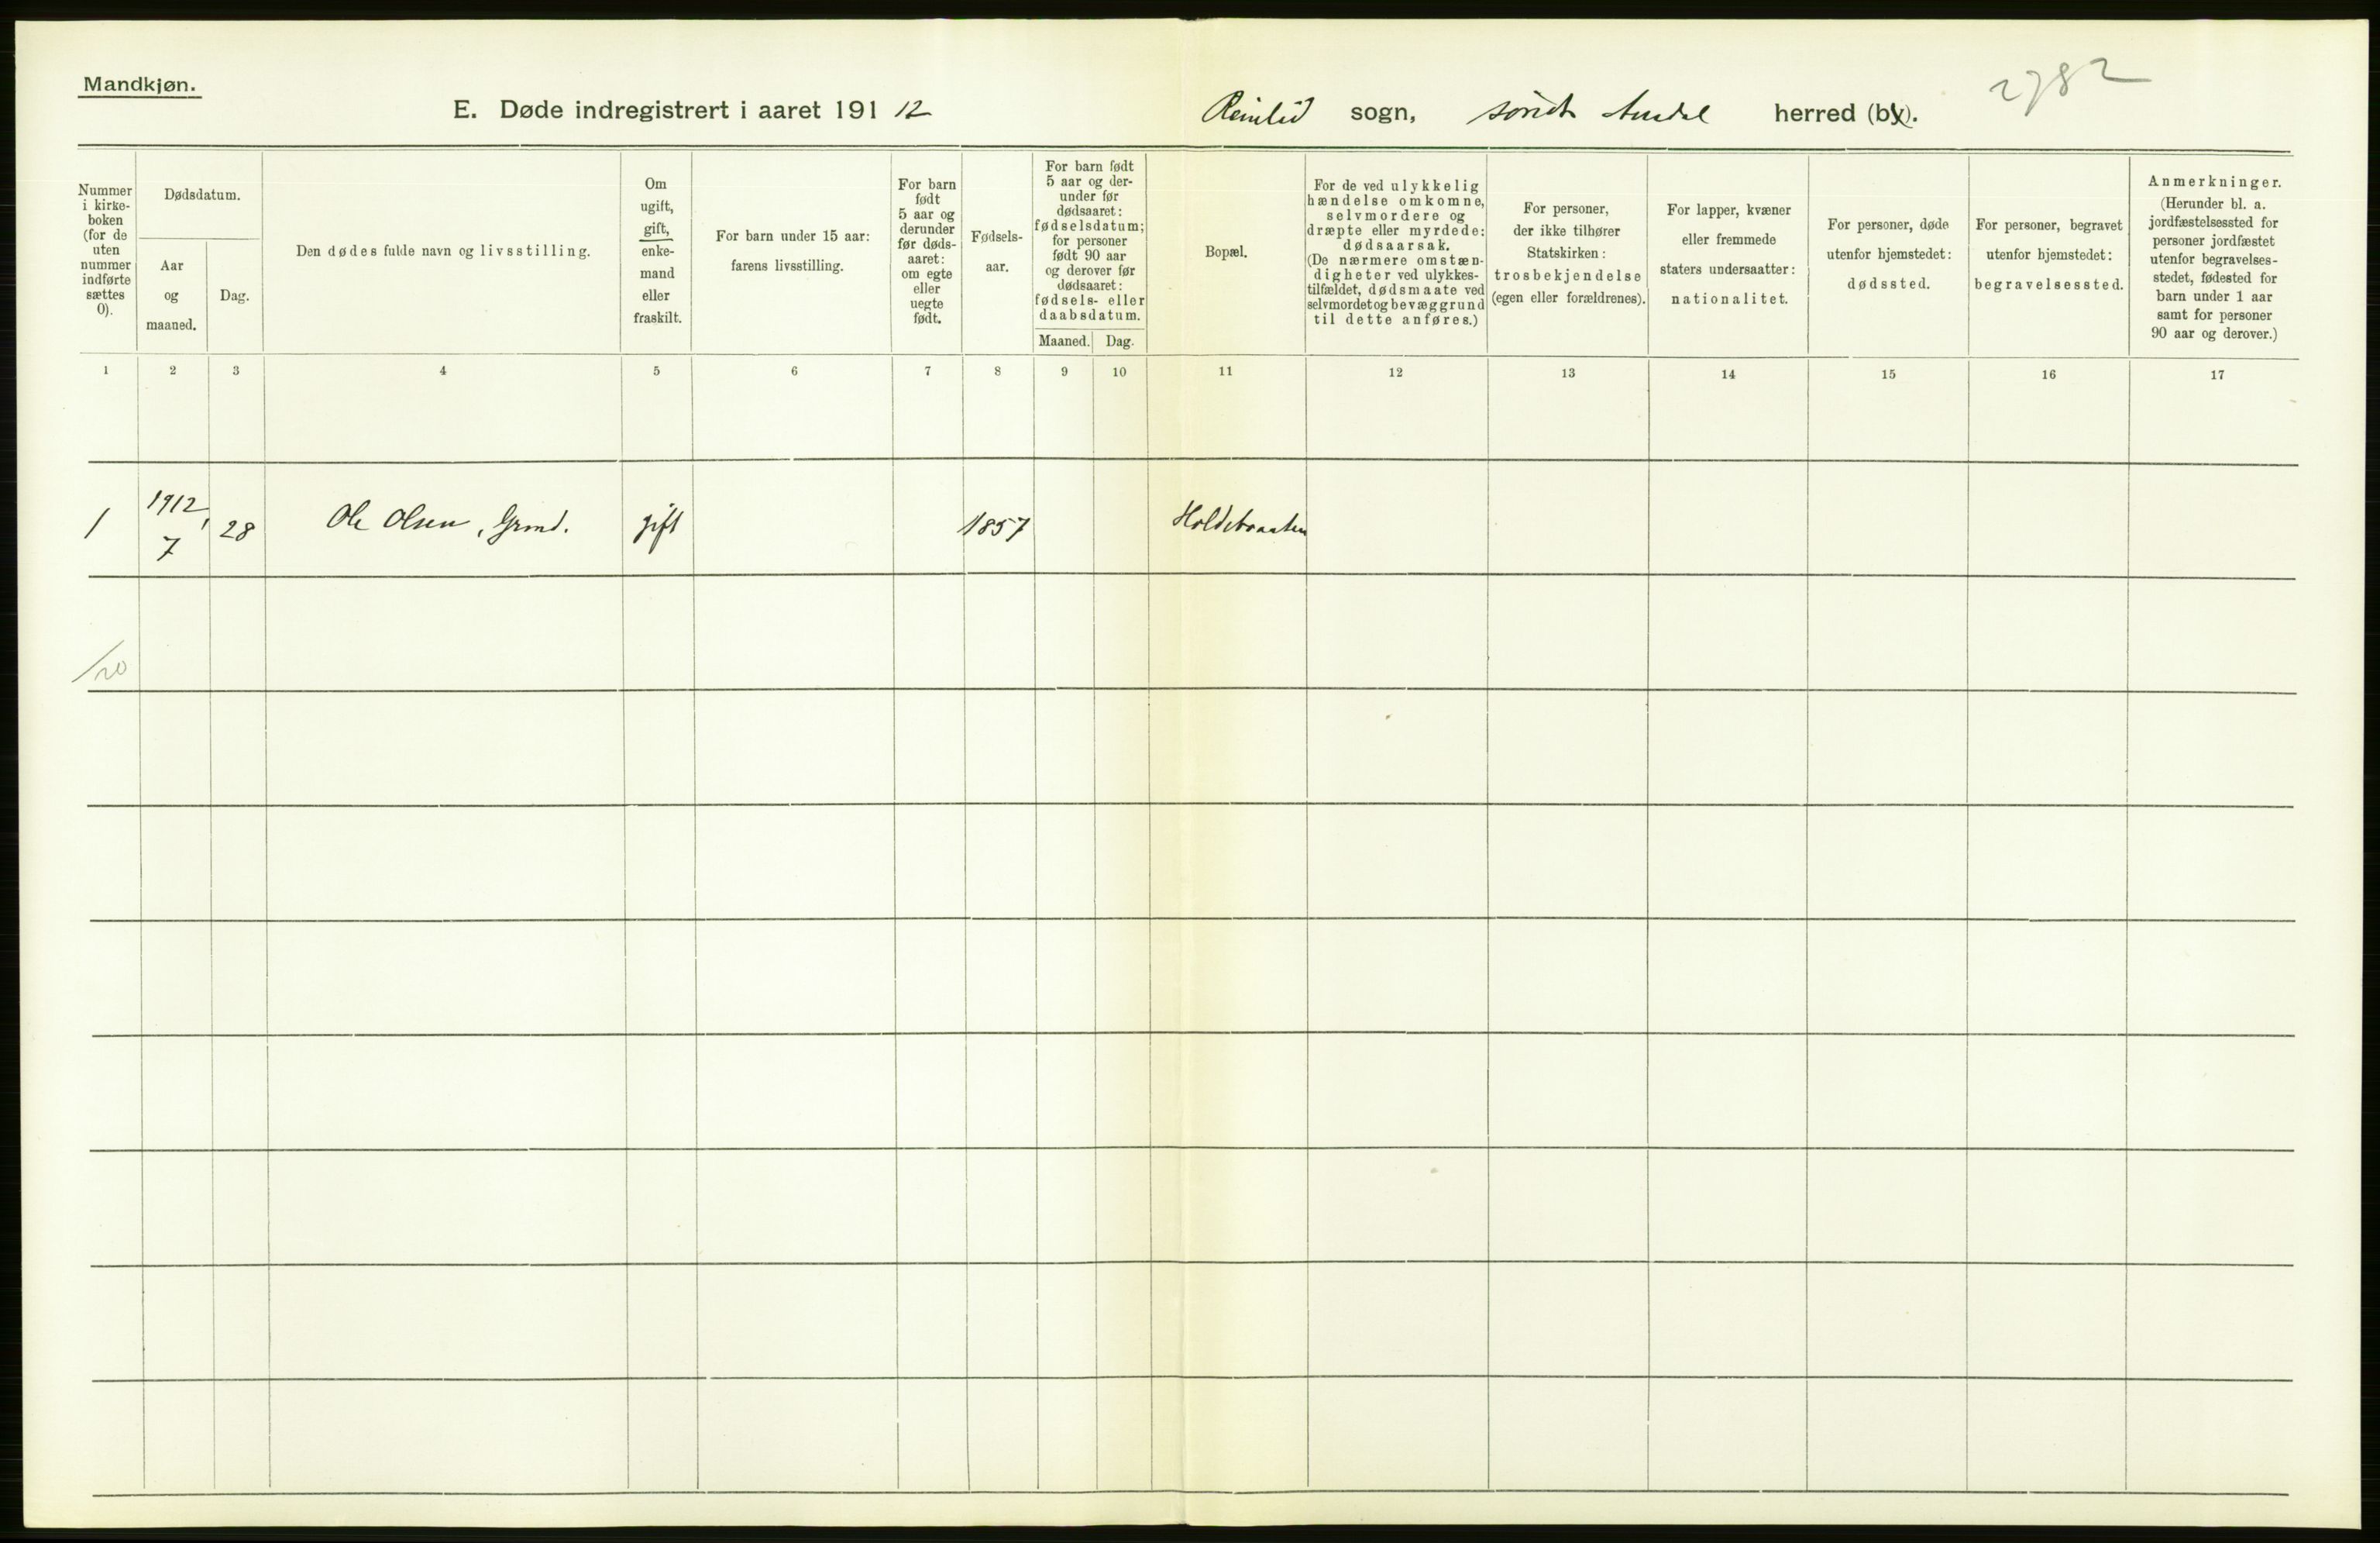 Mandkjøn.
E. Døde indregistrert i aaret 191 12 Reinlid sogn, søndre Aurdal herred (by).
2782
Nummer
i kirke-
boken
(for de
uten
nummer
indførte
sættes
0).
Dødsdatum.
Aar
og
maaned.
Dag.
Den dødes fulde navn og livsstilling.
Om
ugift,
gift,
enke-
mand
eller
fraskilt.
For barn under 15 aar:
farens livsstilling.
For barn
født
5 aar og
derunder
før døds-
aaret:
om egte
eller
uegte
født.
Fødsels-
aar.
For barn født
5 aar og der-
under før
dødsaaret:
fødselsdatum;
for personer
født 90 aar
og derover før
dødsaaret:
fødsels- eller
daabsdatum.
Maaned. Dag.
Bopæl.
For de ved ulykkelig
hændelse omkomne,
selvmordere og
dræpte eller myrdede:
dødsaarsak.
(De nærmere omstæn-
digheter ved ulykkes-
tilfældet, dødsmaate ved
selvmordet og bevæggrund
til dette anføres.)
For personer,
der ikke tilhører
Statskirken:
trosbekjendelse
(egen eller forældrenes).
For lapper, kvæner
eller fremmede
staters undersaatter:
nationalitet.
For personer, døde
utenfor hjemstedet:
dødssted.
For personer, begravet
utenfor hjemstedet:
begravelsessted.
Anmerkninger.
(Herunder bl. a.
jordfæstelsessted for
personer jordfæstet
utenfor begravelses-
stedet, fødested for
barn under 1 aar
samt for personer
90 aar og derover.)
1 2 3 4 5 6 7 8 9 10 11 12 13 14 15 16 17
1 1912, 7 28 Ole Olsen, Grmd. gift 1857 Holdebraaten
/20